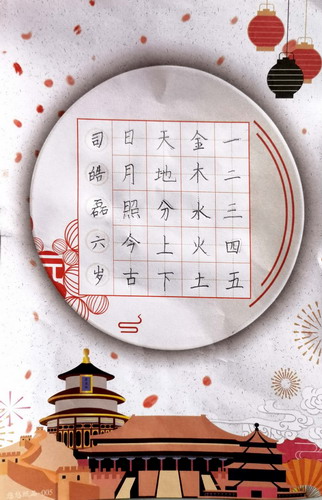 一二三四五
金木水火土
天地分上下
日月照今古
司皓磊六岁